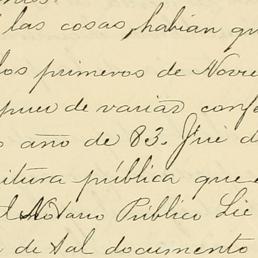 las cosas, habian qu
los primeros de Novie
spues de varias confe
o año de 83. Fué d
ritura pública que
el Notario Público Lic
de tal documento